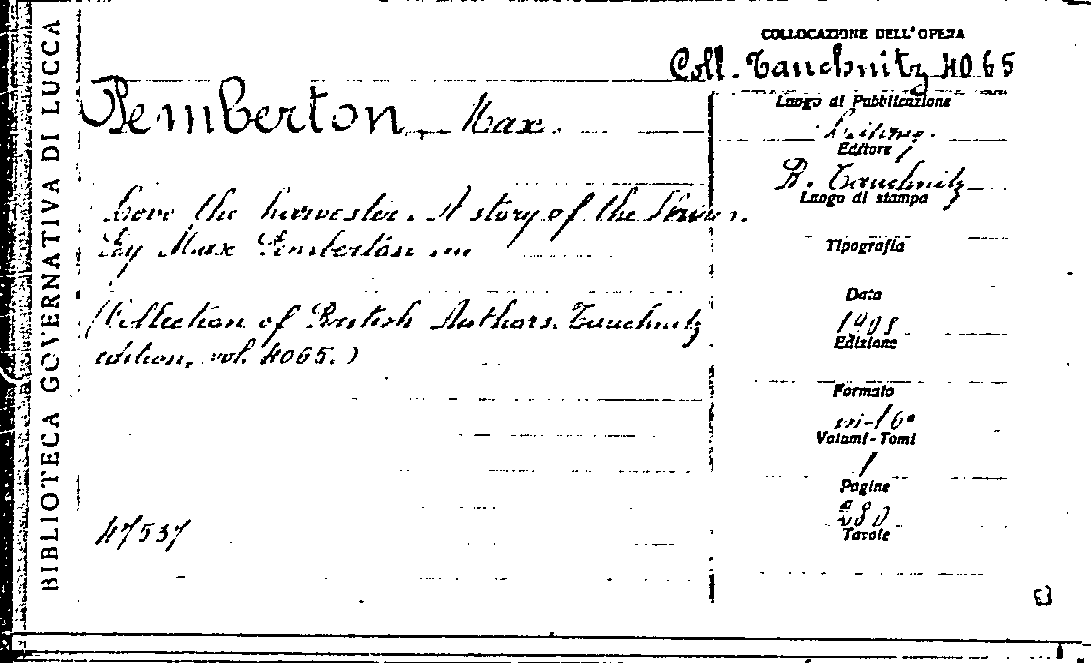 BIBLIOTECA GOVERNATIVA DI LUCCA
COLLOCAZIONE DELL'OPERA
Coll. Tauchnitz 4065
Pemberton, Max.
Love the harvester. A story of the Shires.
By Max Pemberton ...
(Collection of British Authors. Tauchnitz
edition, vol. 4065.)
47537
Luogo di Pubblicazione
Leipzig.
Editore
B. Tauchnitz
Luogo di stampa
Tipografia
Data
1908.
Edizione
Formato
in-16°
Volumi-Tomi
1
Pagine
280.
Tavole